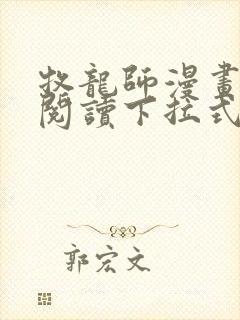 牧龍師漫畫
閱讀下拉式
郭宏文